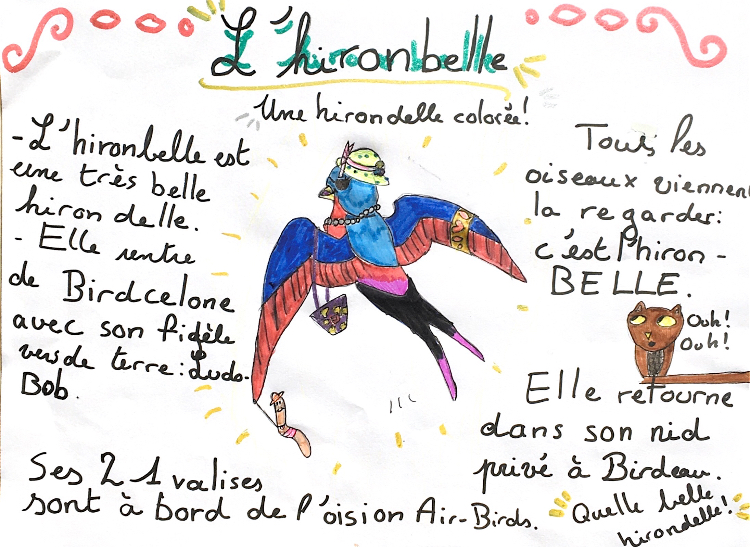 L'hironbelle
Une hirondelle colorée!
- L'hironbelle est
une très belle
hirondelle.
- Elle rentre
de Birdcelone
avec son fidèle
vers de terre: Ludo-
Bob.
Tous les
oiseaux viennent
la regarder:
c'est l'hiron-
BELLE.
Ouh!
Ouh!
Elle retourne
dans son nid
privé à Birdeau.
Ses 21 valises
sont à bord de l'oision Air-Birds.
Quelle belle
hirondelle!